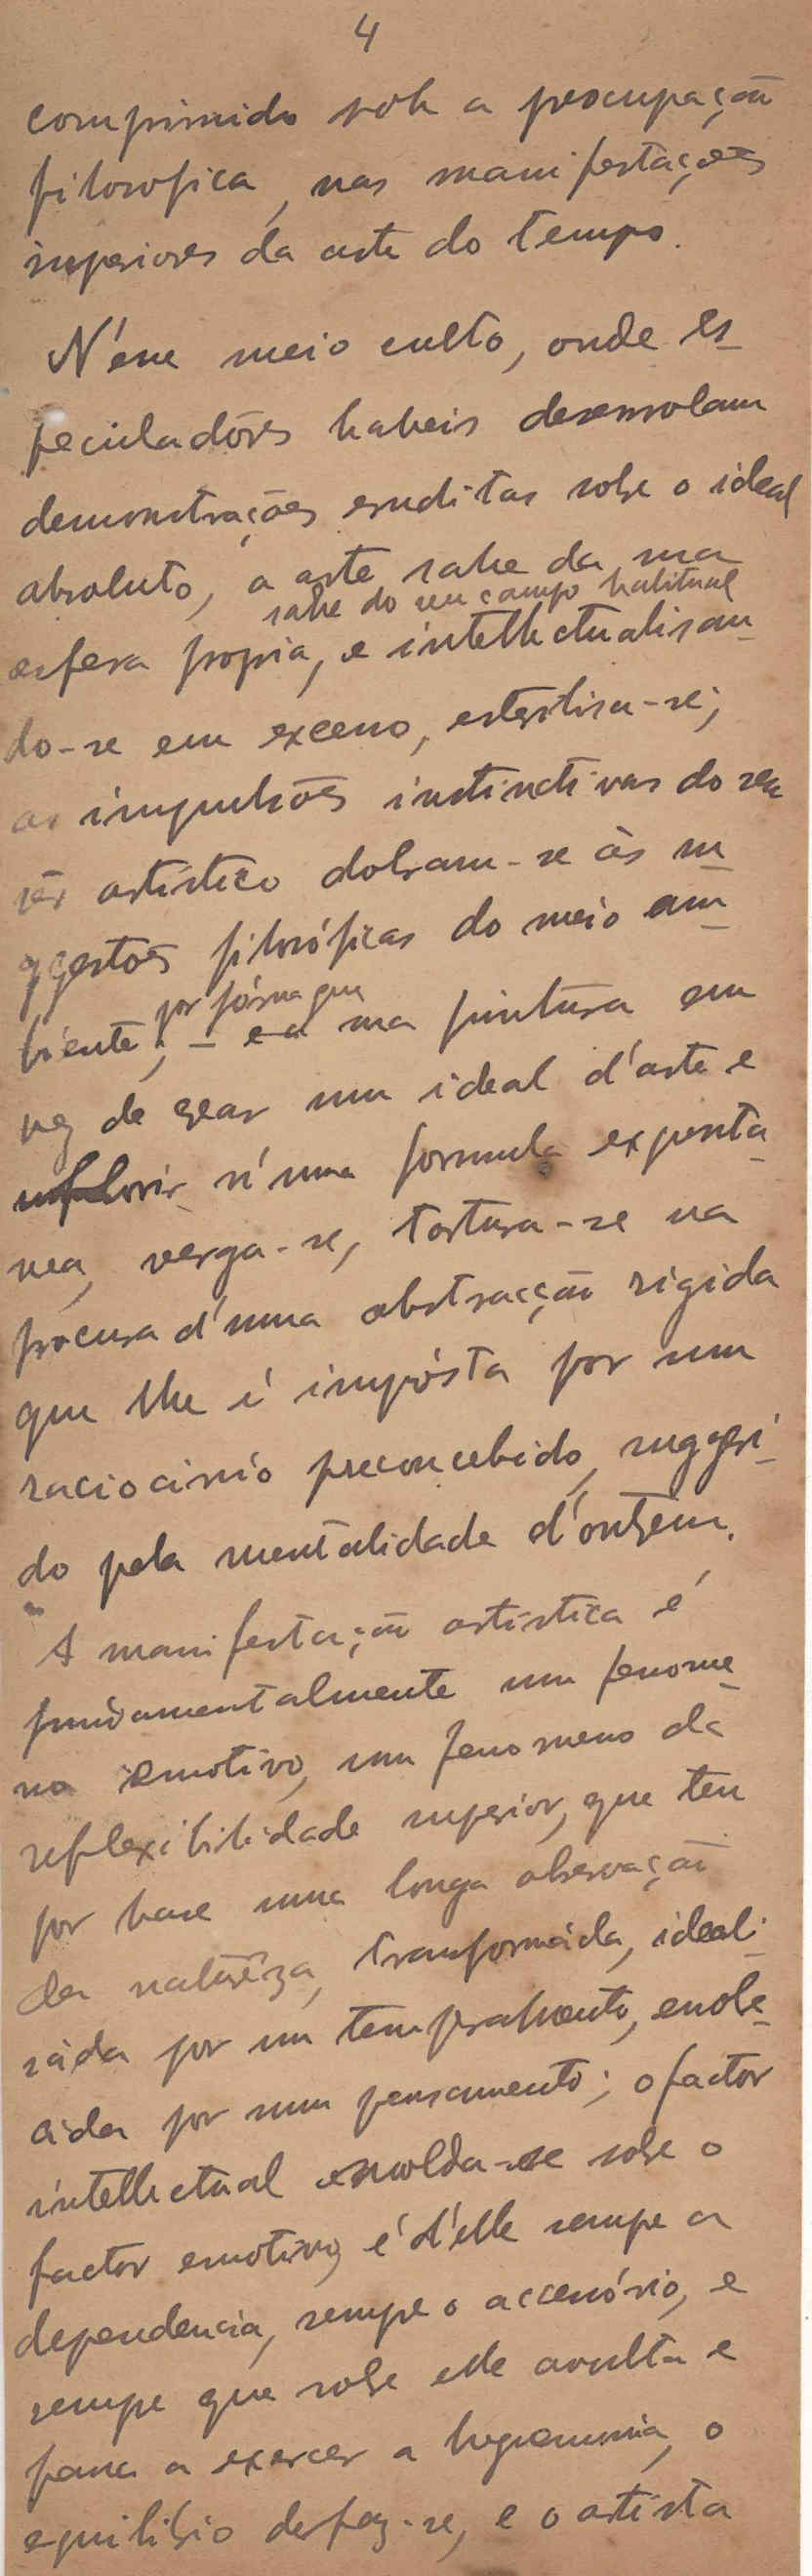 4
comprimido sob a preocupação
filosofica, nas manifestações
superiores da arte do tempo.
N'ésse meio culto, onde es_
peculadôres habeis desenrolam
demonstrações eruditas sobre o ideal
absoluto, a arte sahe da sua
sahe do seu campo habitual
esfera propria, e intellectualisan_
do-se em excesso, esterilisa-se;
as impulsões instinctivas do seu
sêr artistico dobram-se às su_
ggestões filosóficas do meio am_
por fórma que
biente; – e a sua pintura em
vez de crear um ideal d'arte e
florir n'uma formula exponta_
nea, verga-se, tortura-se na
procura d'uma abstracção rigida
que lhe é impósta por um
raciocinio preconcebido, suggeri_
do pela mentalidade d'outrem.
A manifestação artistica é
fundamentalmente um fenome_
no emotivo, um fenomeno da
reflexibilidade superior, que tem
por base uma longa observação
da naturêza, transformáda, ideali_
sáda por um temperamento, enobre_
cida por um pensamento; o factor
intellectual molda-se sobre o
factor emotivo, é d'elle sempre a
dependencia, sempre o accessório, e
sempre que sobre elle avulta e
passa a exercer a hegemonia, o
equilibrio desfaz-se, e o artista